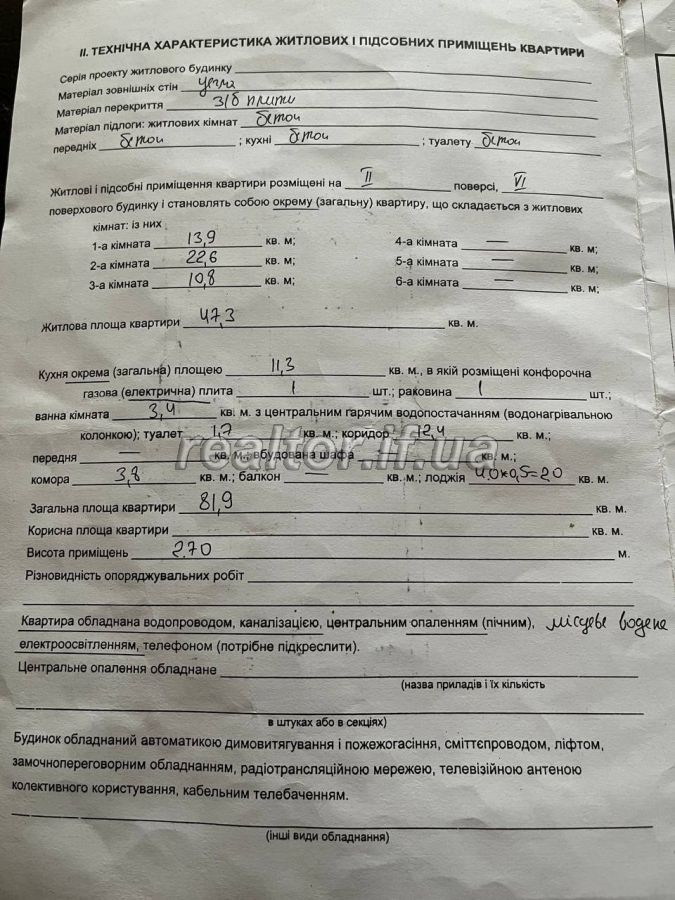 II. ТЕХНІЧНА ХАРАКТЕРИСТИКА ЖИТЛОВИХ І ПІДСОБНИХ ПРИМІЩЕНЬ КВАРТИРИ
Серія проекту житлового будинку
Матеріал зовнішніх стін цегла
Матеріал перекриття з/б плити
Матеріал підлоги: житлових кімнат бетон
передніх бетон ; кухні бетон ; туалету бетон
Житлові і підсобні приміщення квартири розміщені на II поверсі, VI
поверхового будинку і становлять собою окрему (загальну) квартиру, що складається з житлових
кімнат: із них
1-а кімната 13,9 кв. м; 4-а кімната — кв. м;
2-а кімната 22,6 кв. м; 5-а кімната — кв. м;
3-а кімната 10,8 кв. м; 6-а кімната — кв. м;
Житлова площа квартири 47,3 кв. м.
Кухня окрема (загальна) площею 11,3 кв. м., в якій розміщені конфорочна
газова (електрична) плита 1 шт.; раковина 1 шт.;
ванна кімната 3,4 кв. м. з центральним гарячим водопостачанням (водонагрівальною
колонкою); туалет 1,7 кв. м.; коридор 12,4 кв. м.;
передня — кв. м.; вбудована шафа кв. м.;
realtor.if.ua
комора 3,8 кв. м.; балкон — кв. м.; лоджія 4.0×0,5=20 кв. м.
Загальна площа квартири 81,9 кв. м.
Корисна площа квартири кв. м.
Висота приміщень 2.70 м.
Різновидність опоряджувальних робіт
Квартира обладнана водопроводом, каналізацією, центральним опаленням (пічним), місцеве водяне
електроосвітленням, телефоном (потрібне підкреслити).
Центральне опалення обладнане
(назва приладів і їх кількість
в штуках або в секціях)
Будинок обладнаний автоматикою димовитягування і пожежогасіння, сміттєпроводом, ліфтом,
замочнопереговорним обладнанням, радіотрансляційною мережею, телевізійною антеною
колективного користування, кабельним телебаченням.
(інші види обладнання)